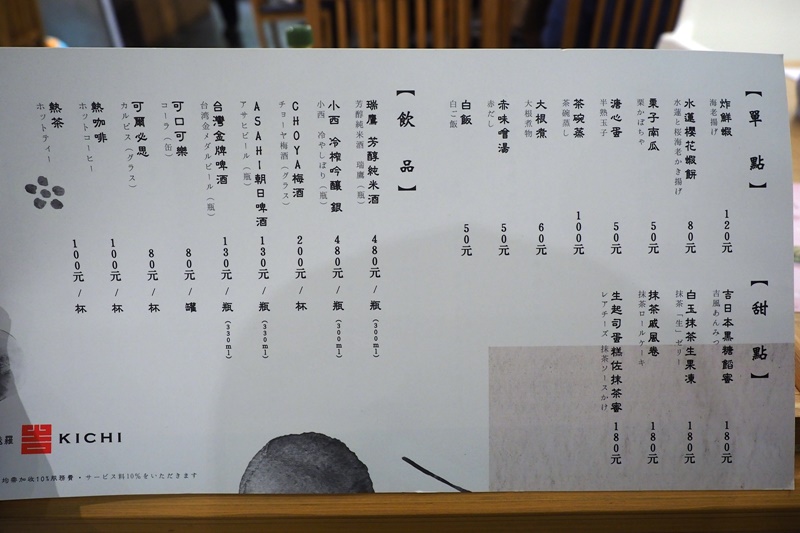 【單點】
炸鮮蝦 120元
海老揚げ
水蓮櫻花蝦餅 80元
水蓮と桜海老かき揚げ
栗子南瓜 50元
栗かぼちゃ
溏心蛋 50元
半熟玉子
茶碗蒸 100元
茶碗蒸し
大根煮 60元
大根煮物
赤味噌湯 50元
赤だし
白飯 50元
白ご飯
【甜點】
吉日本黑糖餡蜜 180元
吉風あんみつ
白玉抹茶生果凍 180元
抹茶「生」ゼリー
抹茶戚風卷 180元
抹茶ロールケーキ
生起司蛋糕佐抹茶蜜 180元
レアチーズ 抹茶ソースかけ
【飲品】
瑞鷹 芳醇純米酒 480元／瓶 (300ml)
芳醇純米酒 瑞鷹（瓶）
小西 冷榨吟釀 銀 480元／瓶 (300ml)
小西 冷やしぼり（瓶）
CHOYA梅酒 200元／杯
チョーヤ梅酒（グラス）
ASAHI朝日啤酒 130元／瓶 (330ml)
アサヒビール（瓶）
台灣金牌啤酒 130元／瓶 (330ml)
台湾金メダルビール（瓶）
可口可樂 80元／罐
コーラ（缶）
可爾必思 80元／杯
カルピス（グラス）
熱咖啡 100元／杯
ホットコーヒー
熱茶 100元／杯
ホットティー
羅 吉 KICHI
均需加收10%服務費・サービス料10%をいただきます